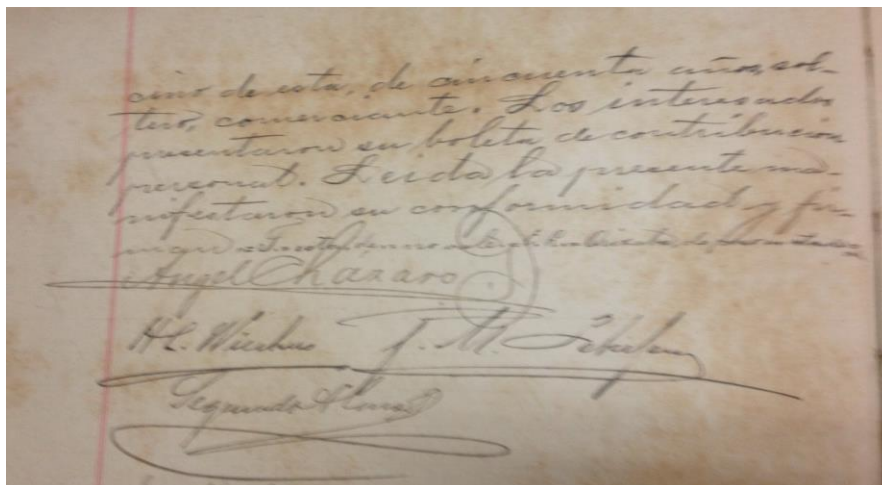 cino de esta, de cincuenta años, sol-
tero, comerciante. Los interesados
presentaron su boleta de contribucion
personal. Leida la presente ma-
nifestaron su conformidad y fir-
man
Angel Cházaro
H. C. J. M.
Segundo Alonso